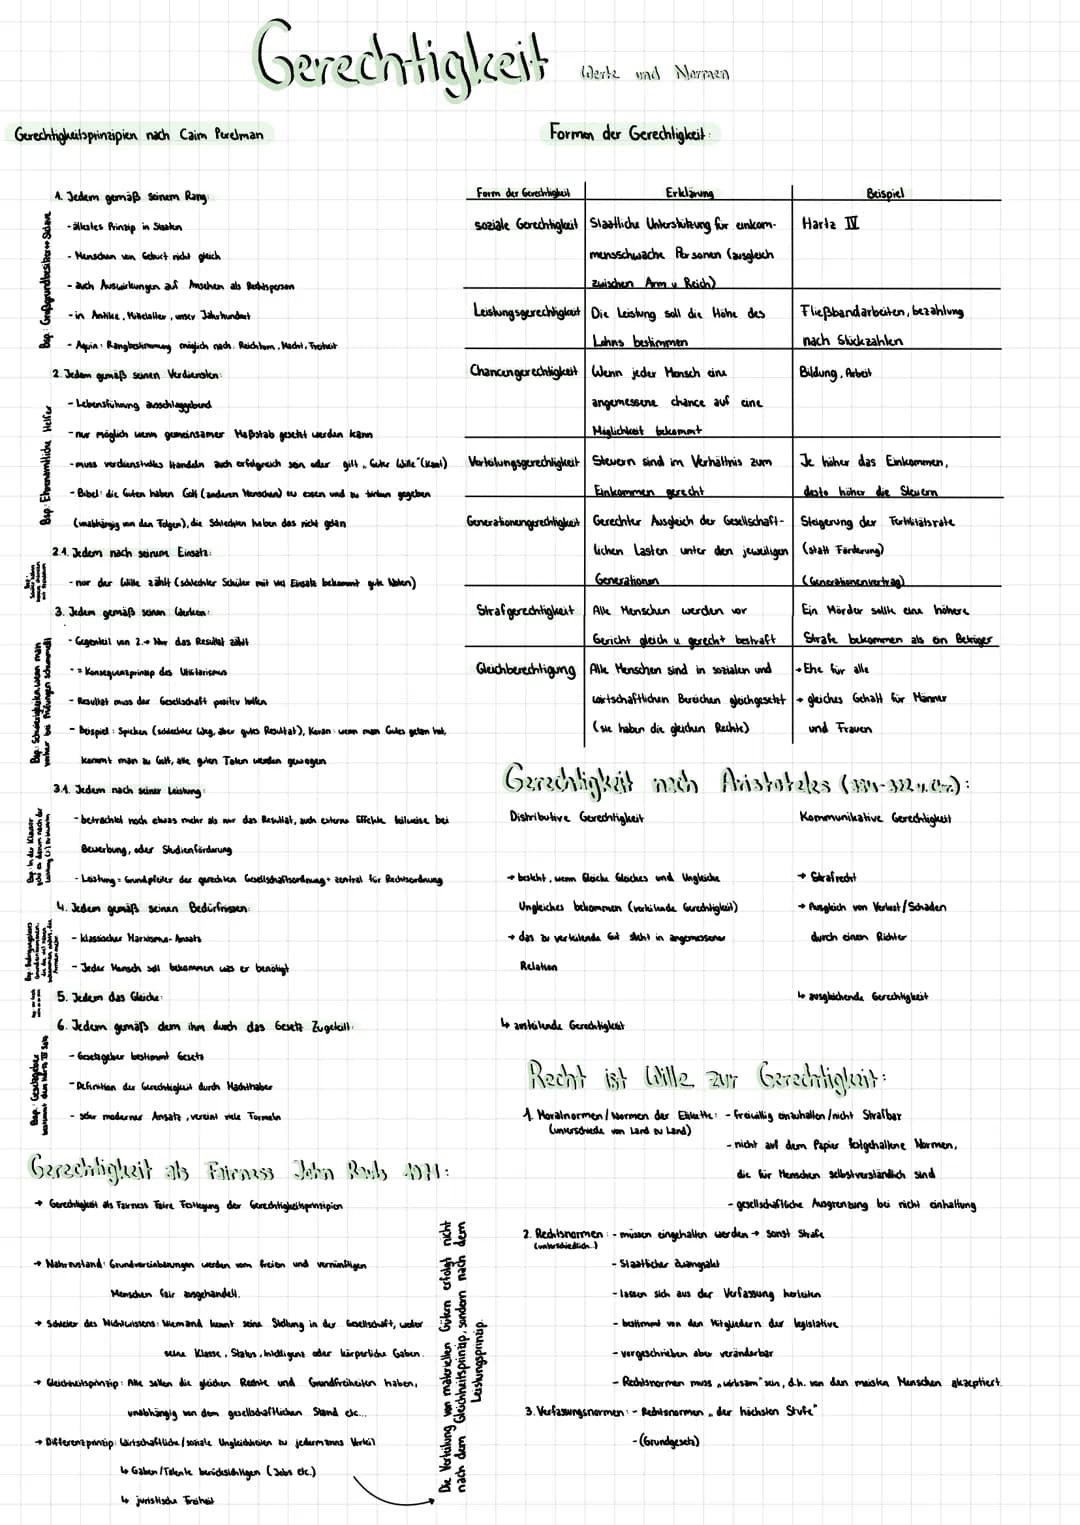 Gerechtigkeit Werte und Normen
Gerechtigkeitsprinzipien nach Caim Perelman
1. Jedem gemäß seinem Rang:
- ältestes Prinzip in Staaten
- Menschen von Geburt nicht gleich
- auch Auswirkungen auf Ansehen als Rechtsperson
- in Antike, Mittelalter, unser Jahrhundert
- Aquin: Rangbestimmung möglich nach: Reichtum, Macht, Freiheit
Bsp: Großgrundbesitzer ↔ Sklave
2. Jedem gemäß seinen Verdiensten:
- Lebensführung ausschlaggebend
- nur möglich wenn gemeinsamer Maßstab gesetzt werden kann
- muss verdienstvolles Handeln auch erfolgreich sein oder gilt „Guter Wille" (Kant)
- Bibel: die Guten haben Gott (anderen Menschen) zu essen und zu trinken gegeben
(unabhängig von den Folgen), die Schlechten haben das nicht getan
Bsp: Ehrenamtliche Helfer
2.1. Jedem nach seinem Einsatz:
- nur der Wille zählt (schlechter Schüler mit viel Einsatz bekommt gute Noten)
3. Jedem gemäß seinen Werken:
- Gegenteil von 2.→ Nur das Resultat zählt
- = Konsequenzprinzip des Utilitarismus
- Resultat muss der Gesellschaft positiv helfen
- Beispiel: Spicken (schlechter Weg, aber gutes Resultat), Koran: wenn man Gutes getan hat,
kommt man zu Gott, alle guten Taten werden gewogen
Bsp: Schwierigkeiten, wenn man vorher bei Prüfungen schummelt
3.1. Jedem nach seiner Leistung:
- betrachtet noch etwas mehr als nur das Resultat, auch externe Effekte teilweise bei
Bewerbung, oder Studienförderung
- Leistung = Grundpfeiler der gerechten Gesellschaftsordnung + zentral für Rechtsordnung
4. Jedem gemäß seinen Bedürfnissen:
- klassischer Marxismus-Ansatz
- Jeder Mensch soll bekommen was er benötigt
5. Jedem das Gleiche:
6. Jedem gemäß dem ihm durch das Gesetz Zugeteilt:
- Gesetzgeber bestimmt Gesetz
- Definition der Gerechtigkeit durch Machthaber
- sehr moderner Ansatz, vereint viele Formeln
Bsp: Gesetzgeber bestimmt den Hartz IV Satz
Gerechtigkeit als Fairness John Rawls 1971:
→ Gerechtigkeit als Fairness Faire Festlegung der Gerechtigkeitsprinzipien
→ Naturzustand: Grundvereinbarungen werden vom freien und vernünftigen
Menschen fair ausgehandelt.
→ Schleier des Nichtwissens: Niemand kennt seine Stellung in der Gesellschaft, weder
seine Klasse, Status, Intelligenz oder körperliche Gaben.
→ Gleichheitsprinzip: Alle sollen die gleichen Rechte und Grundfreiheiten haben,
unabhängig von dem gesellschaftlichen Stand etc...
→ Differenzprinzip: Wirtschaftliche/soziale Ungleichheiten zu jedermanns Vorteil
↳ Gaben/Talente berücksichtigen (Jobs etc.)
↳ juristische Freiheit
Die Verteilung von materiellen Gütern erfolgt nicht
nach dem Gleichheitsprinzip, sondern nach dem
Leistungsprinzip.
Formen der Gerechtigkeit:
Form der Gerechtigkeit Erklärung Beispiel
soziale Gerechtigkeit Staatliche Unterstützung für einkom- Hartz IV
mensschwache Personen (ausgleich
zwischen Arm u Reich)
Leistungsgerechtigkeit Die Leistung soll die Höhe des Fließbandarbeiten, bezahlung
Lohns bestimmen nach Stückzahlen
Chancengerechtigkeit Wenn jeder Mensch eine Bildung, Arbeit
angemessene chance auf eine
Möglichkeit bekommt
Verteilungsgerechtigkeit Steuern sind im Verhältnis zum Je höher das Einkommen,
Einkommen gerecht desto höher die Steuern
Generationengerechtigkeit Gerechter Ausgleich der Gesellschaft- Steigerung der Fertilitätsrate
lichen Lasten unter den jeweiligen (statt Förderung)
Generationen (Generationenvertrag)
Strafgerechtigkeit Alle Menschen werden vor Ein Mörder sollte eine höhere
Gericht gleich u gerecht bestraft Strafe bekommen als ein Betrüger
Gleichberechtigung Alle Menschen sind in sozialen und → Ehe für alle
wirtschaftlichen Bereichen gleichgesetzt → gleiches Gehalt für Männer
(sie haben die gleichen Rechte) und Frauen
Gerechtigkeit nach Aristoteles (384-322 v. Chr.):
Distributive Gerechtigkeit
→ besteht, wenn Gleiche Gleiches und Ungleiche
Ungleiches bekommen (verteilende Gerechtigkeit)
→ das zu verteilende Gut steht in angemessener
Relation
↳ austeilende Gerechtigkeit
Kommunikative Gerechtigkeit
→ Strafrecht
→ Ausgleich von Verlust/Schäden
durch einen Richter
↳ ausgleichende Gerechtigkeit
Recht ist Wille zur Gerechtigkeit:
1. Moralnormen/Normen der Etikette: - freiwillig einzuhalten/nicht Strafbar
(unterschiede von Land zu Land)
- nicht auf dem Papier festgehaltene Normen,
die für Menschen selbstverständlich sind
- gesellschaftliche Ausgrenzung bei nicht einhaltung
2. Rechtsnormen: - müssen eingehalten werden → sonst Strafe
(unterschiedlich)
- Staatlicher Zwangsakt
- lassen sich aus der Verfassung herleiten
- bestimmt von den Mitgliedern der legislative
- vorgeschrieben aber veränderbar
- Rechtsnormen muss „wirksam" sein, d.h. von den meisten Menschen akzeptiert
3. Verfassungsnormen: - Rechtsnormen „der höchsten Stufe"
- (Grundgesetz)